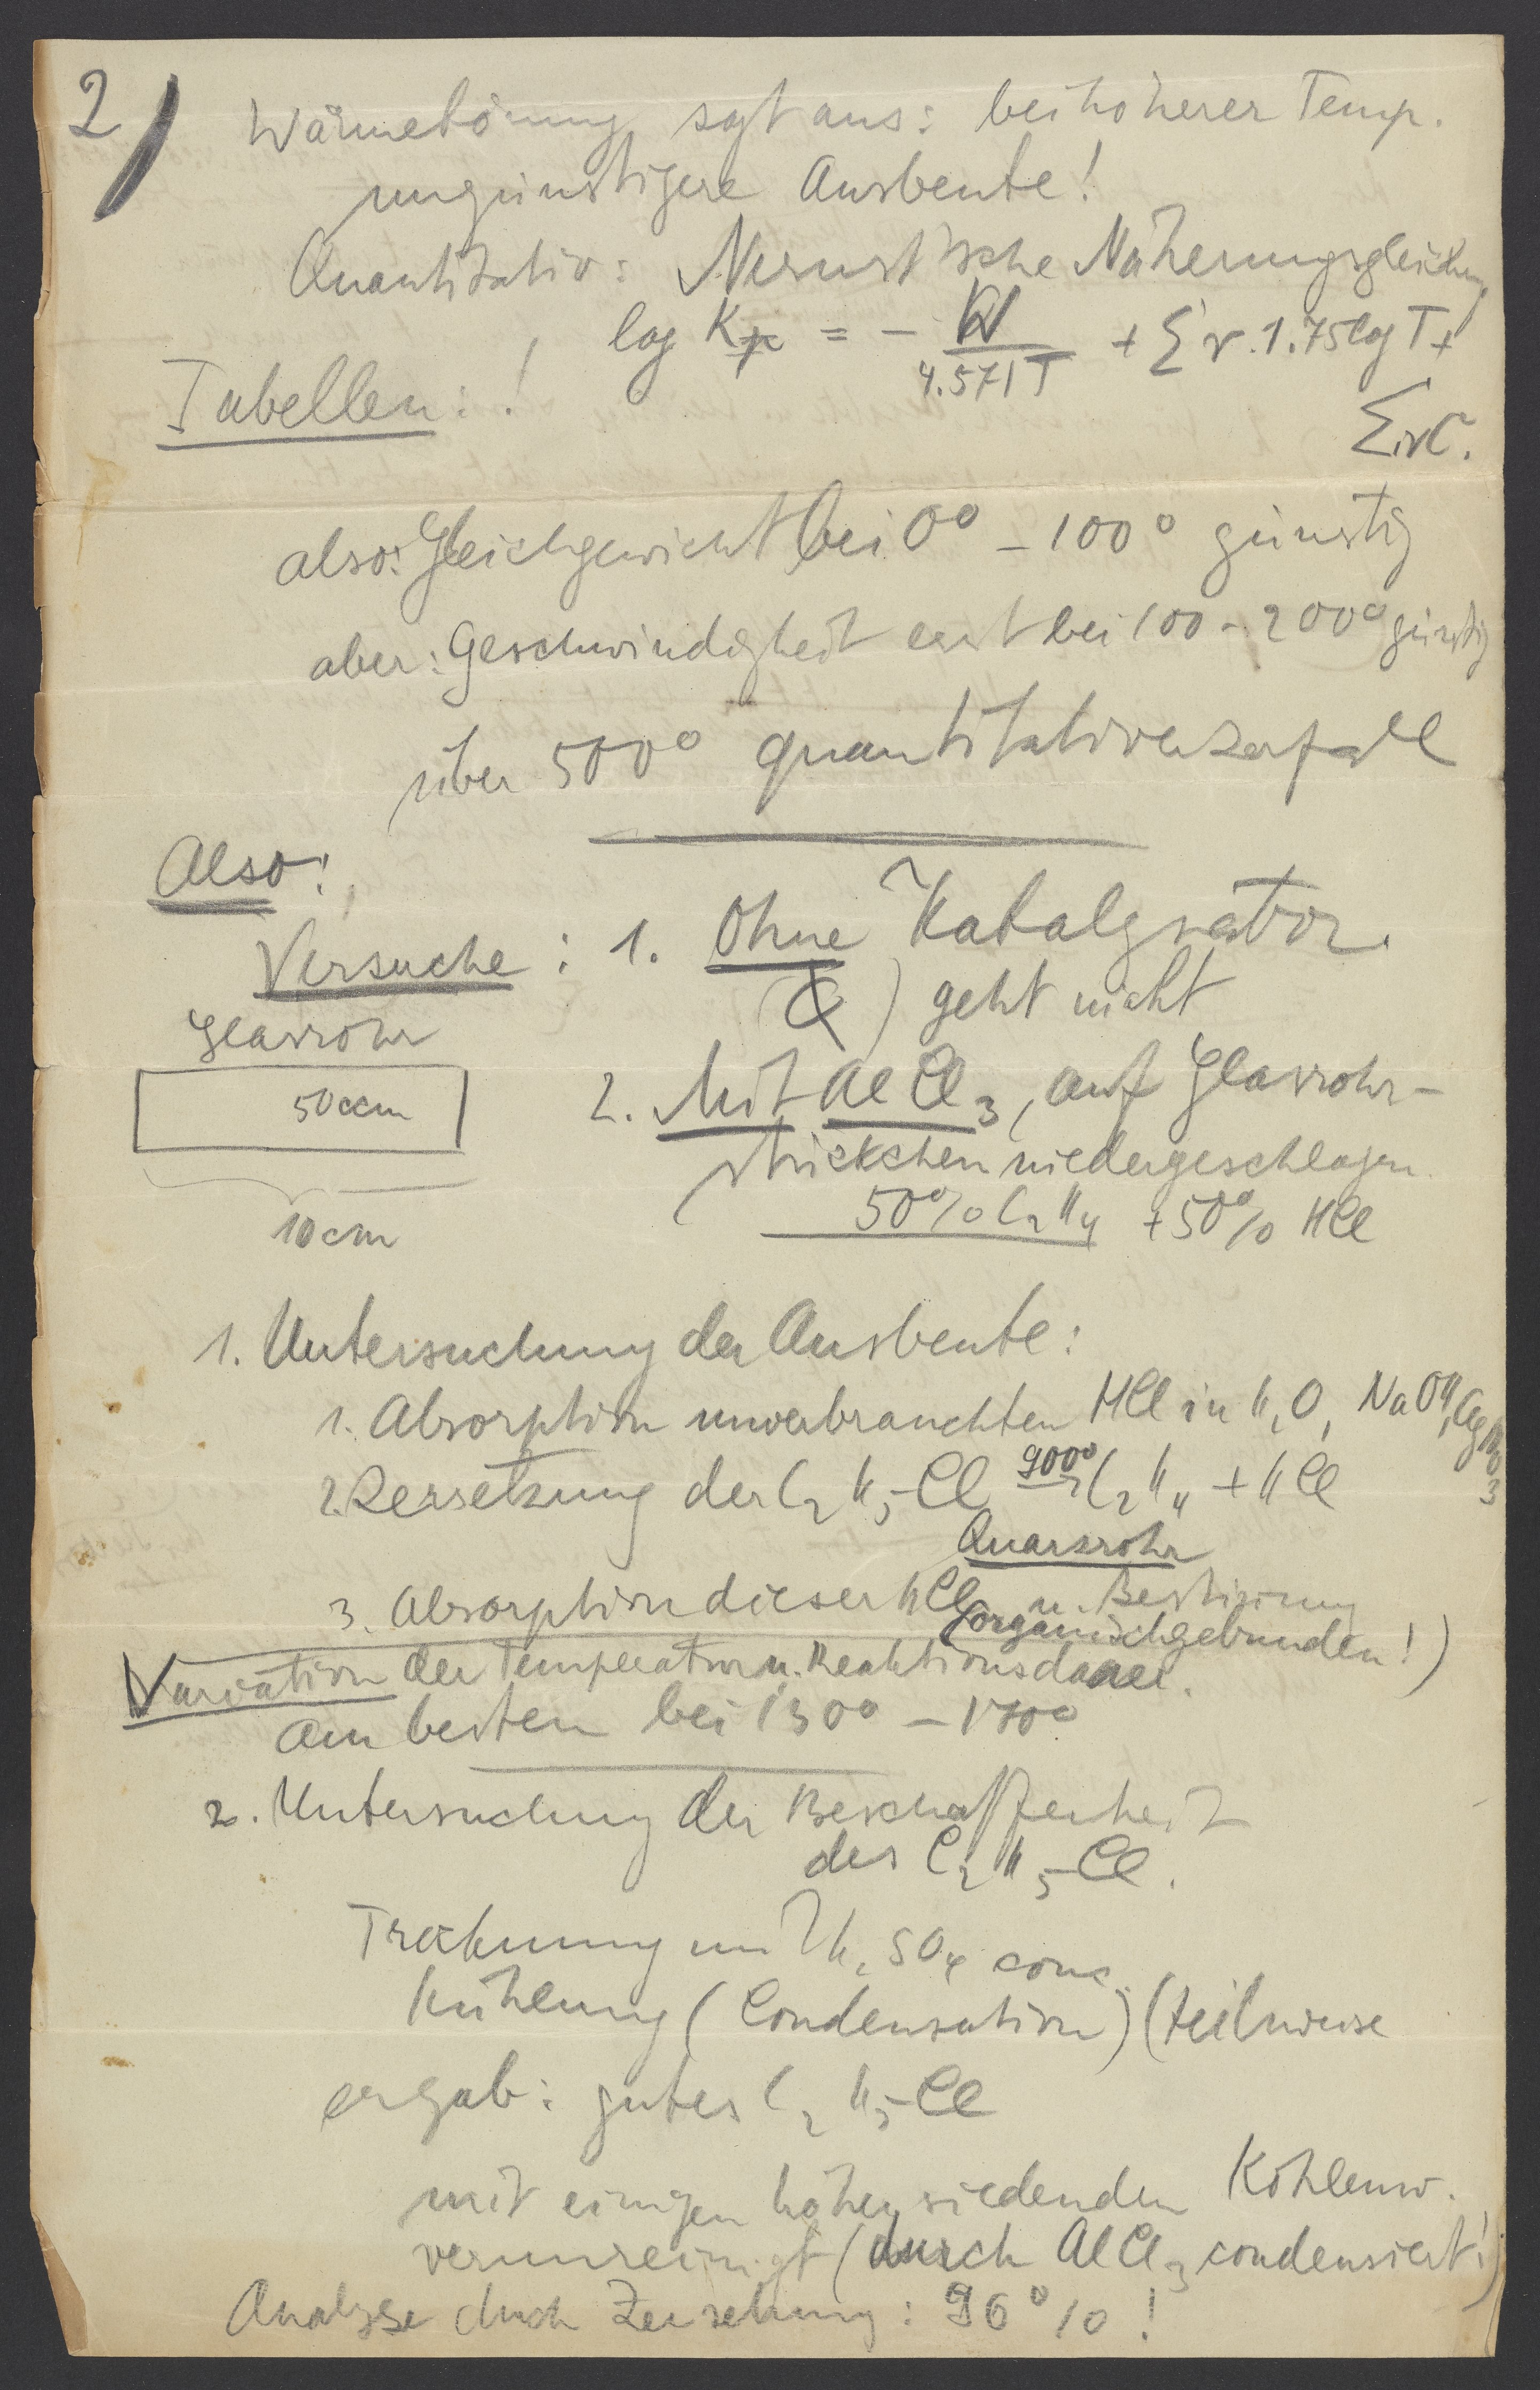 2)
Wärmetönung sagt aus: bei höherer Temp.
ungünstigere Ausbeute!
Quantitativ: Nernst'sche Näherungsgleichung
log Kp = - W / 4.571 T + Σν.1.75 log T +
ΣνC.
Tabellen:!
also: Gleichgewicht bei 0° - 100° günstig
aber: Geschwindigkeit erst bei 100 - 200° günstig
über 500° quantitativer Zerfall
Also:
Versuche: 1. Ohne Katalysator.
) geht nicht
Glasrohr
50 ccm
10 cm
2. Mit AlCl3, auf Glasrohr-
stückchen niedergeschlagen
50% C2H4 + 50% HCl
1. Untersuchung der Ausbeute:
1. Absorption unverbrauchten HCl in H2O, NaOH, AgNO3
2. Zersetzung der C2H5-Cl 900° → C2H4 + HCl
Quarzrohr
3. Absorption dieser HCl u. Bestimung
(organisch gebunden!)
Variation der Temperatur u. Reaktionsdauer.
Am besten bei 130° - 170°
2. Untersuchung der Beschaffenheit
des C2H5-Cl.
Trocknung mit H2SO4 conc.
Kühlung (Condensation) (teilweise
ergab: gutes C2H5-Cl
mit einigen höher siedenden Kohlenw.
verunreinigt (durch AlCl3 condensiert!)
Analyse durch Zersetzung: 96%!